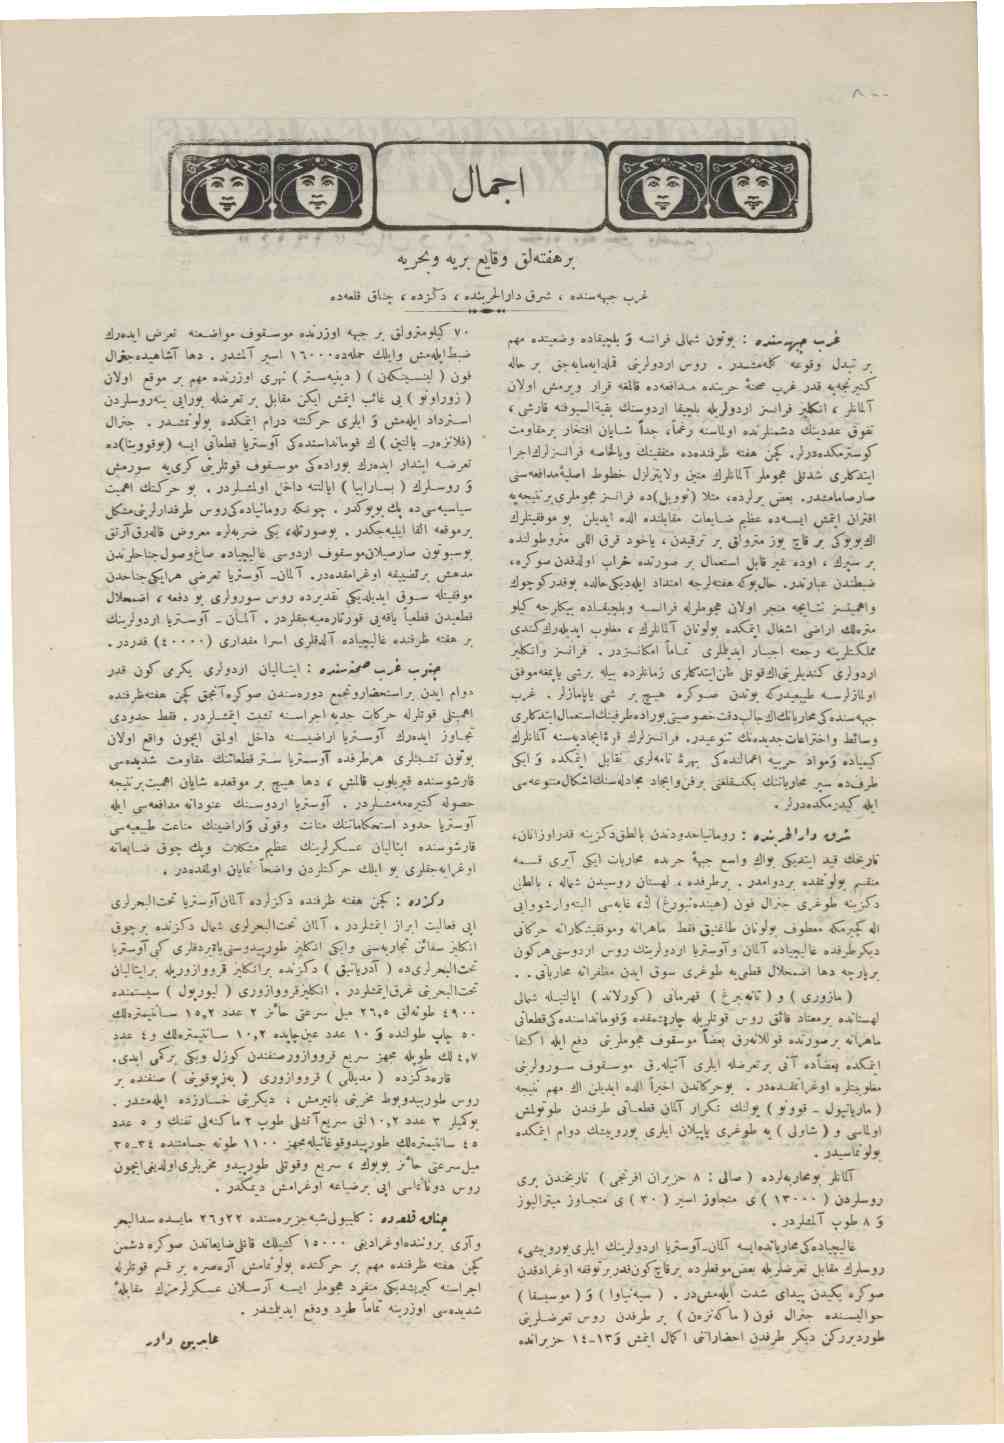 اجمال
برهفته‌لق وقايع بريه وبحريه
غرب جبهه‌سنده ، شرق دارالحربنده ، دكزده ، چناق قلعه‌ده
غرب جبهه‌سنده : بوتون شمالى فرانسه و بلچيقاده وضعيتده مهم
بر تبدل وقوعه كلمه‌مشدر . روس اردولرينى قملدايه‌مايه‌جق بر حاله
كتيرنجه‌يه قدر غرب صحنۀ حربنده مدافعه‌ده قالمغه قرار ويرمش اولان
آلمانلر ، انكليز فرانسز اردولريله بلچيقا اردوسنك بقية‌السيوفنه قارشى ،
تفوق عددينك دشمنلرنده اولماسنه رغماً ، جداً شايان افتخار برمقاومت
كوسترمكده‌درلر. كچن هفته ظرفنده‌ده متفقينك وبالخاصه فرانسزلرك اجرا
ايتدكلرى شدتلى هجوملر آلمانلرك متين ولايتزلزل خطوط اصليۀ مدافعه‌سنى
صارصامامشدر. بعض يرلرده، مثلا (نوويل)ده فرانسز هجوملرى بر نتيجه‌يه
اقتران ايتمش ايسه‌ده عظيم ضايعات مقابلنده الده ايديلن بو موفقيتلرك
اك بويوكى بر قاچ يوز مترولق بر ترقيدن ، ياخود قرق اللى متروطولنده
بر سنپرك ، اوده غير قابل استعمال بر صورتده خراب اولدقدن صوكره،
ضبطندن عبارتدر. حال‌بوكه هفته‌لرجه امتداد ايله‌ديكى حالده بوقدر كوچوك
واهميتسز نتايجه منجر اولان هجوملرله فرانسه وبلچيقاده بيكلرجه كيلو
متره‌لك اراضى اشغال ايتمكده بولونان آلمانلرك ، مغلوب ايديله‌رك كندى
مملكتلرينه رجعته اجبار ايديلملرى تماماً امكانسزدر. فرانسز وانكليز
اردولرى كنديلرينى اك قوتلى ظن ايتدكلرى زمانلرده بيله برشى ياپمغه موفق
اولمازلرسه طبيعيدركه بوندن صوكره هيچ بر شى ياپامازلر. غرب
جبهه‌سنده‌كى محارباتك اك جالب دقت خصوصيتى بوراده طرفينك استعمال ايتدكلرى
وسائط واختراعات جديده‌نك تنوعيدر. فرانسزلرك قوۀ ايجاديه‌سنه آلمانلرك
كيمياده ومواد حربيه اعمالنده‌كى بهرۀ تامه‌لرى تقابل ايتمكده و ايكى
طرفده سير محارباتنك يكنسقلغنى برفن وايجاد مجادله‌سنك اشكال متنوعه‌سى
ايله كيدرمكده‌درلر.
شرق دارالحربنده : رومانيا حدودندن بالطق دكزينه قدر اوزانان،
تاريخك قيد ايتديكى بواك واسع جبهۀ حربده محاربات ايكى آيرى قسمه
منقسم بولونمقده بردوامدر. برطرفده ، لهستان روسيدن شماله ، بالطق
دكزينه طوغرى جنرال فون (هيندنبورغ) ك، غايه‌سى البته وارشووايى
اله كچيرمكه معطوف بولونان طاغنيق فقط ماهرانه وموفقيتكارانه حركاتى
ديكر طرفده غاليچياده آلمان وآوستريا اردولرينك روس اردوسنى هركون
برپارچه دها اضمحلال قطعى‌يه طوغرى سوق ايدن مظفرانه محارباتى . .
( مازورى ) و ( تانه‌نبرغ ) قهرمانى ( كورلاند ) ايالتيله شمالى
لهستانده برمعتاد فائق روس قوتلريله چارپشمقده وقوماندا‌سنده‌كى قطعاتى
ماهرانه برصورتده قوللانه‌رق بعضاً موسقوف هجوملرينى دفع ايله اكتفا
ايتمكده بعضاًده آنى برتعرضله ايلرى آتيله‌رق موسقوف سورولرينى
مغلوبيتلره اوغراتمقده‌در. بوحركاتدن اخيراً الده ايديلن اك مهم نتيجه
( مارياتپول - قوونو ) يولنك تكرار آلمان قطعاتى طرفندن طوتولمش
اولماسى و ( شاولى ) يه طوغرى ياپيلان ايلرى يورويشك دوام ايتمكده
بولونماسيدر.
آلمانلر بومحاربه‌لرده ( صالى : ٨ حزيران افرنجى ) تاريخندن برى
روسلردن ( ١٣٠٠٠ ) ى متجاوز اسير ( ٣٠ ) ى متجاوز ميتراليوز
و ٨ طوپ آلمشلردر .
غاليچياده‌كى محارباتده‌ايسه آلمان-آوستريا اردولرينك ايلرى يورويشى،
روسلرك مقابل تعرضلريله بعض موقعلرده برقاچ كون قدر برتوقفه اوغرادقدن
صوكره يكيدن پيداى شدت ايله‌مش‌در. ( سيه‌نياوا ) و ( موسيسقا )
حواليسنده جنرال فون ( ماكه‌نزه‌ن ) بر طرفدن روس تعرضلرينى
طوردير‌ركن ديكر طرفدن احضاراتنى اكمال ايتمش و١٣-١٤ حزيرانده
٧٠ كيلومترولق بر جبهه اوزرنده موسقوف مواضعنه تعرض ايده‌رك
ضبط ايله‌مش وايلك حمله‌ده ١٦٠٠٠ اسير آلمشدر. دها آشاغيده جنرال
فون ( لينسينكه‌ن ) ( دينيه‌ستر ) نهرى اوزرنده مهم بر موقع اولان
( زوراونو ) يى غائب ايتمش ايكن مقابل بر تعرضله بورايى ينه روسلردن
استرداد ايله‌مش و ايلرى حركتنه دوام ايتمكده بولونمشدر. جنرال
(فلانزه‌ر- بالتين) ك قوماندا‌سنده‌كى آوستريا قطعاتى ايسه (بوقووينا)ده
تعرضه ابتدار ايده‌رك بوراده‌كى موسقوف قوتلرينى كرى‌يه سورمش
و روسلرك ( بسارابيا ) ايالتنه داخل اولمشلردر. بو حركتك اهميت
سياسيه‌سى ده پك بويوكدر. چونكه رومانياده‌كى روس طرفدارلرينى مشكل
برموقعه القا ايليه‌جكدر. بوصورتله، يكى ضربه‌لره معروض قاله‌رق آرتق
بوسبوتون صارصيلان موسقوف اردوسى غاليچياده صاغ وصول جناحلرندن
مدهش برتضييقه اوغرامقده‌در. آلمان- آوستريا تعرضى هرايكى جناحدن
موفقيتله سوق ايديله‌بلديكى تقديرده روس سورولرى بو دفعه ، اضمحلال
قطعيدن قطعياً ياقه‌يى قورتاره‌ميه‌جقلردر. آلمان - آوستريا اردولرينك
بر هفته ظرفنده غاليچياده آلدقلرى اسرا مقدارى (٤٠٠٠٠) قدردر.
جنوب غرب صحنه‌سنده : ايتاليان اردولرى يكرمى كون قدر
دوام ايدن براستحضار وتجمع دوره‌سندن صوكره آنجق كچن هفته ظرفنده
اهميتلى قوتلرله حركات جديه اجراسنه تشبت ايتمشلردر. فقط حدودى
تجاوز ايده‌رك آوستريا اراضيسنه داخل اولمق ايچون واقع اولان
بوتون تشبثلرى هرطرفده آوستريا ستر قطعاتنك مقاومت شديده‌سى
قارشوسنده قيريلوب قالمش ، دها هيچ بر موقعده شايان اهميت برنتيجه
حصوله كتيره‌مه‌مشلردر . آوستريا اردوسنك عنودانه مدافعه‌سى ايله
آوستريا حدود استحكاماتنك متانت وقوتى واراضينك مناعت طبيعيه‌سى
قارشوسنده ايتاليان عسكرلرينك عظيم مشكلات وپك چوق ضايعاته
اوغرايه‌جقلرى بو ايلك حركتلردن واضحاً نمايان اولمقده‌در .
دكزده : كچن هفته ظرفنده دكزلرده آلمان آوستريا تحت‌البحرلرى
ايى فعاليت ابراز ايتمشلردر. آلمان تحت‌البحرلرى شمال دكزنده برچوق
انكليز سفائن تجاريه‌سنى وايكى انكليز طورپيدوسنى باتيردقلرى كبى آوستريا
تحت‌البحرلرى‌ده ( آدرياتيق ) دكزنده برانكليز قرووازوريله برايتاليان
تحت‌البحرينى غرق ايتمشلردر. انكليز قرووازورى ( ليورپول ) سيستمنده
٤٩٠٠ طونه‌لق ٢٦,٥ ميل سرعتى حائز ٢ عدد ١٥,٢ سانتيمتره‌لك
٥٠ چاپ طولنده و ١٠ عدد عين چاپده ١٠,٢ سانتيمتره‌لك و٤ عدد
٤,٧ لك طوپله مجهز سريع قرووازور صنفندن كوزل ويكى بركمى ايدى.
قاره‌دكزده ( مديللى ) قرووازورى ( به‌زپوقوينى ) صنفنده بر
روس طورپيدوبوط مخربنى باتيرمش ، ديكرينى خساره‌زده ايله‌مشدر .
بوكميلر ٣ عدد ١٠,٢لق سريع آتشلى طوپ ٢ ماكنه‌لى تفنك و ٥ عدد
٤٥ سانتيمتره‌لك طورپيدو قوغانيله مجهز ١١٠٠ طونه جسامتنده ٣٤-٣٥
ميل سرعتى حائز بويوك ، سريع وقوتلى طورپيدو مخربلرى اولديغى ايچون
روس دونانماسى ايى برضياعه اوغرامش ديمكدر.
چناق قلعه‌ده : كليبولى شبه‌جزيره‌سنده ٢٢و٢٦ مايسده سدالبحر
وآرى بروننده اوغراديغى ١٥٠٠٠ كشيلك قانلى ضايعاتدن صوكره دشمن
كچن هفته ظرفنده مهم بر حركتده بولونمامش آره‌صره بر قسم قوتلرله
اجراسنه كيريشديكى منفرد هجوملر ايسه آرسلان عسكرلرمزك مقابلۀ
شديده‌سى اوزرينه تماماً طرد ودفع ايديلمشدر .
عابدين داور